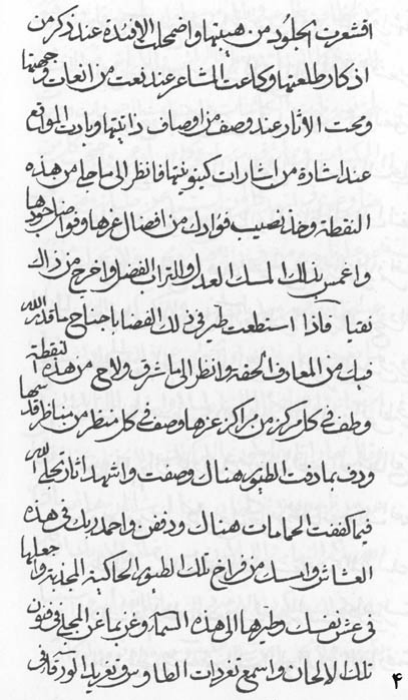 اقشعرت الجلود من هيبتها واضمحلت الافئدة عند ذكر من
اذكار طلعتها وكاعت المشاعر عند نعت من انعات وجهتها
ومحت الآثار عند وصف من اوصاف ذاتيتها وبادت المواقع
عند اشارة من اشارات كينونيتها فانظر الى ما جلى من هذه
النقطة وخذ نصيب فؤادك من افضال عزها وفواضل جودها
واغمس بذلك المسك العدل والتراب الفضل واخرج من ذاك
نقيا فاذا استطعت طر في ذلك الفضا باجناح ما قدر الله
فيك من المعارف الحقه وانظر الى ما شرق ولاح من هذه النقطة
وطف في كل مركز من مراكز عزها وصف في كل منظر من مناظر قدسها
ودف بما دفت الطيور هناك وصفت واشهد اثار تجلى الله
فيما كفت الحمامات هناك ودفن واحمد ربك في هذه
العشاش وامسك من فراخ تلك الطيور الحاكية المجذبة واجعلها
في عش نفسك وطيرها الى هذه السماء وغن بما غن المجلى في فنون
تلك الالحان واسمع تغردات الطاوس وتغريد الورقاء في
۴